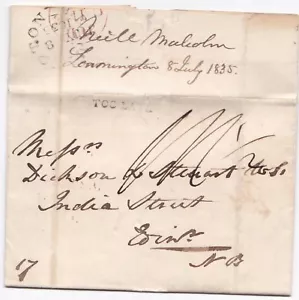 Neill Malcolm
Leamington 8 July 1835.
TOO LATE
Messrs
Dickson & Steuart WS
India Street
Edinr
NB
17